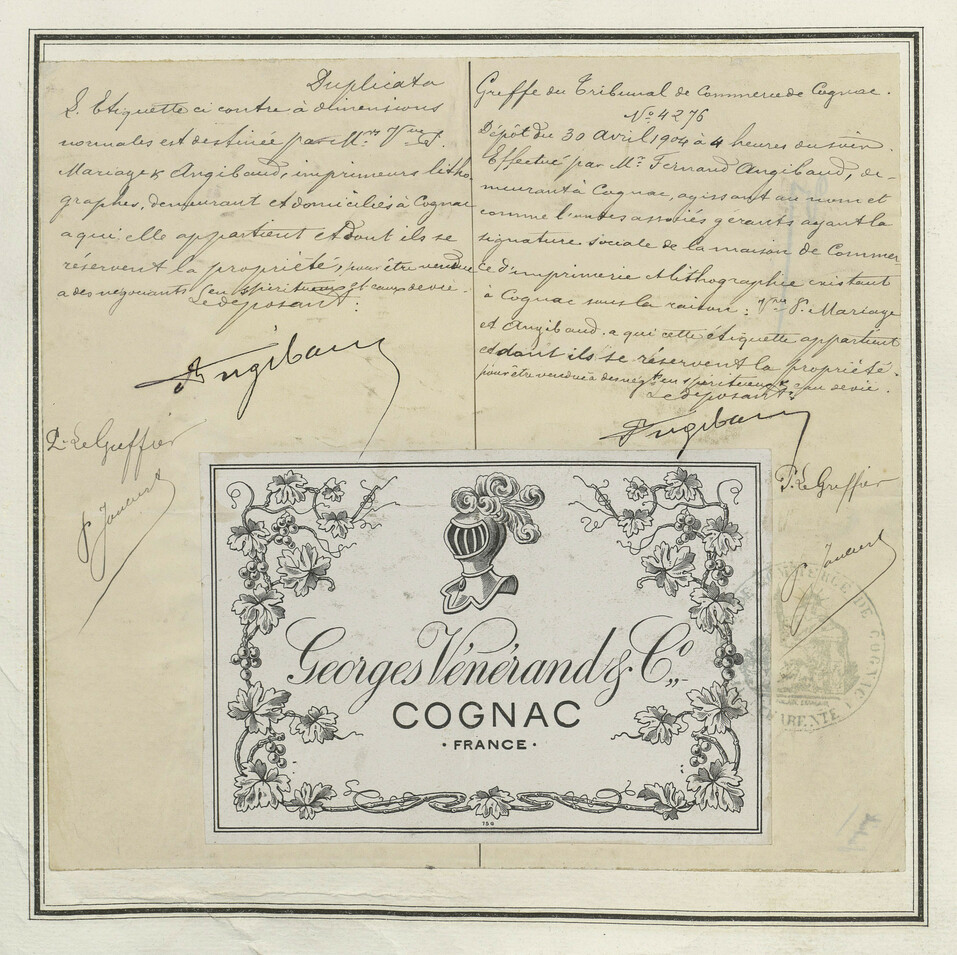 Duplicata
L'Etiquette ci contre à dimensions
normales est destinée par Mrs Vve P.
Mariage & Angibaud, imprimeurs litho-
graphes, demeurant et domiciliés à Cognac
a qui elle appartient et dont ils se
réservent la propriété, pour être vendue
a des négociants en spiritueux et eaux de vie.
Le déposant:
Angibaud
P. Le Greffier
Greffe du Tribunal de Commerce de Cognac.
No 4276
Dépôt du 30 Avril 1904 à 4 heures du soir.
Effectué par Mr Fernand Angibaud, de-
meurant à Cognac, agissant au nom et
comme l'un des associés gérants ayant la
signature sociale de la maison de Commer-
ce d'imprimerie et lithographie existant
à Cognac sous la raison: Vve P. Mariage
et Angibaud. a qui cette étiquette appartient
et dont ils se réservent la propriété.
pour être vendue à des négts en spiritueux & eau de vie.
Le déposant:
Angibaud
P. Le Greffier
Georges Vénérand & Co.,
COGNAC
· FRANCE ·
DE COGNAC
CHARENTE